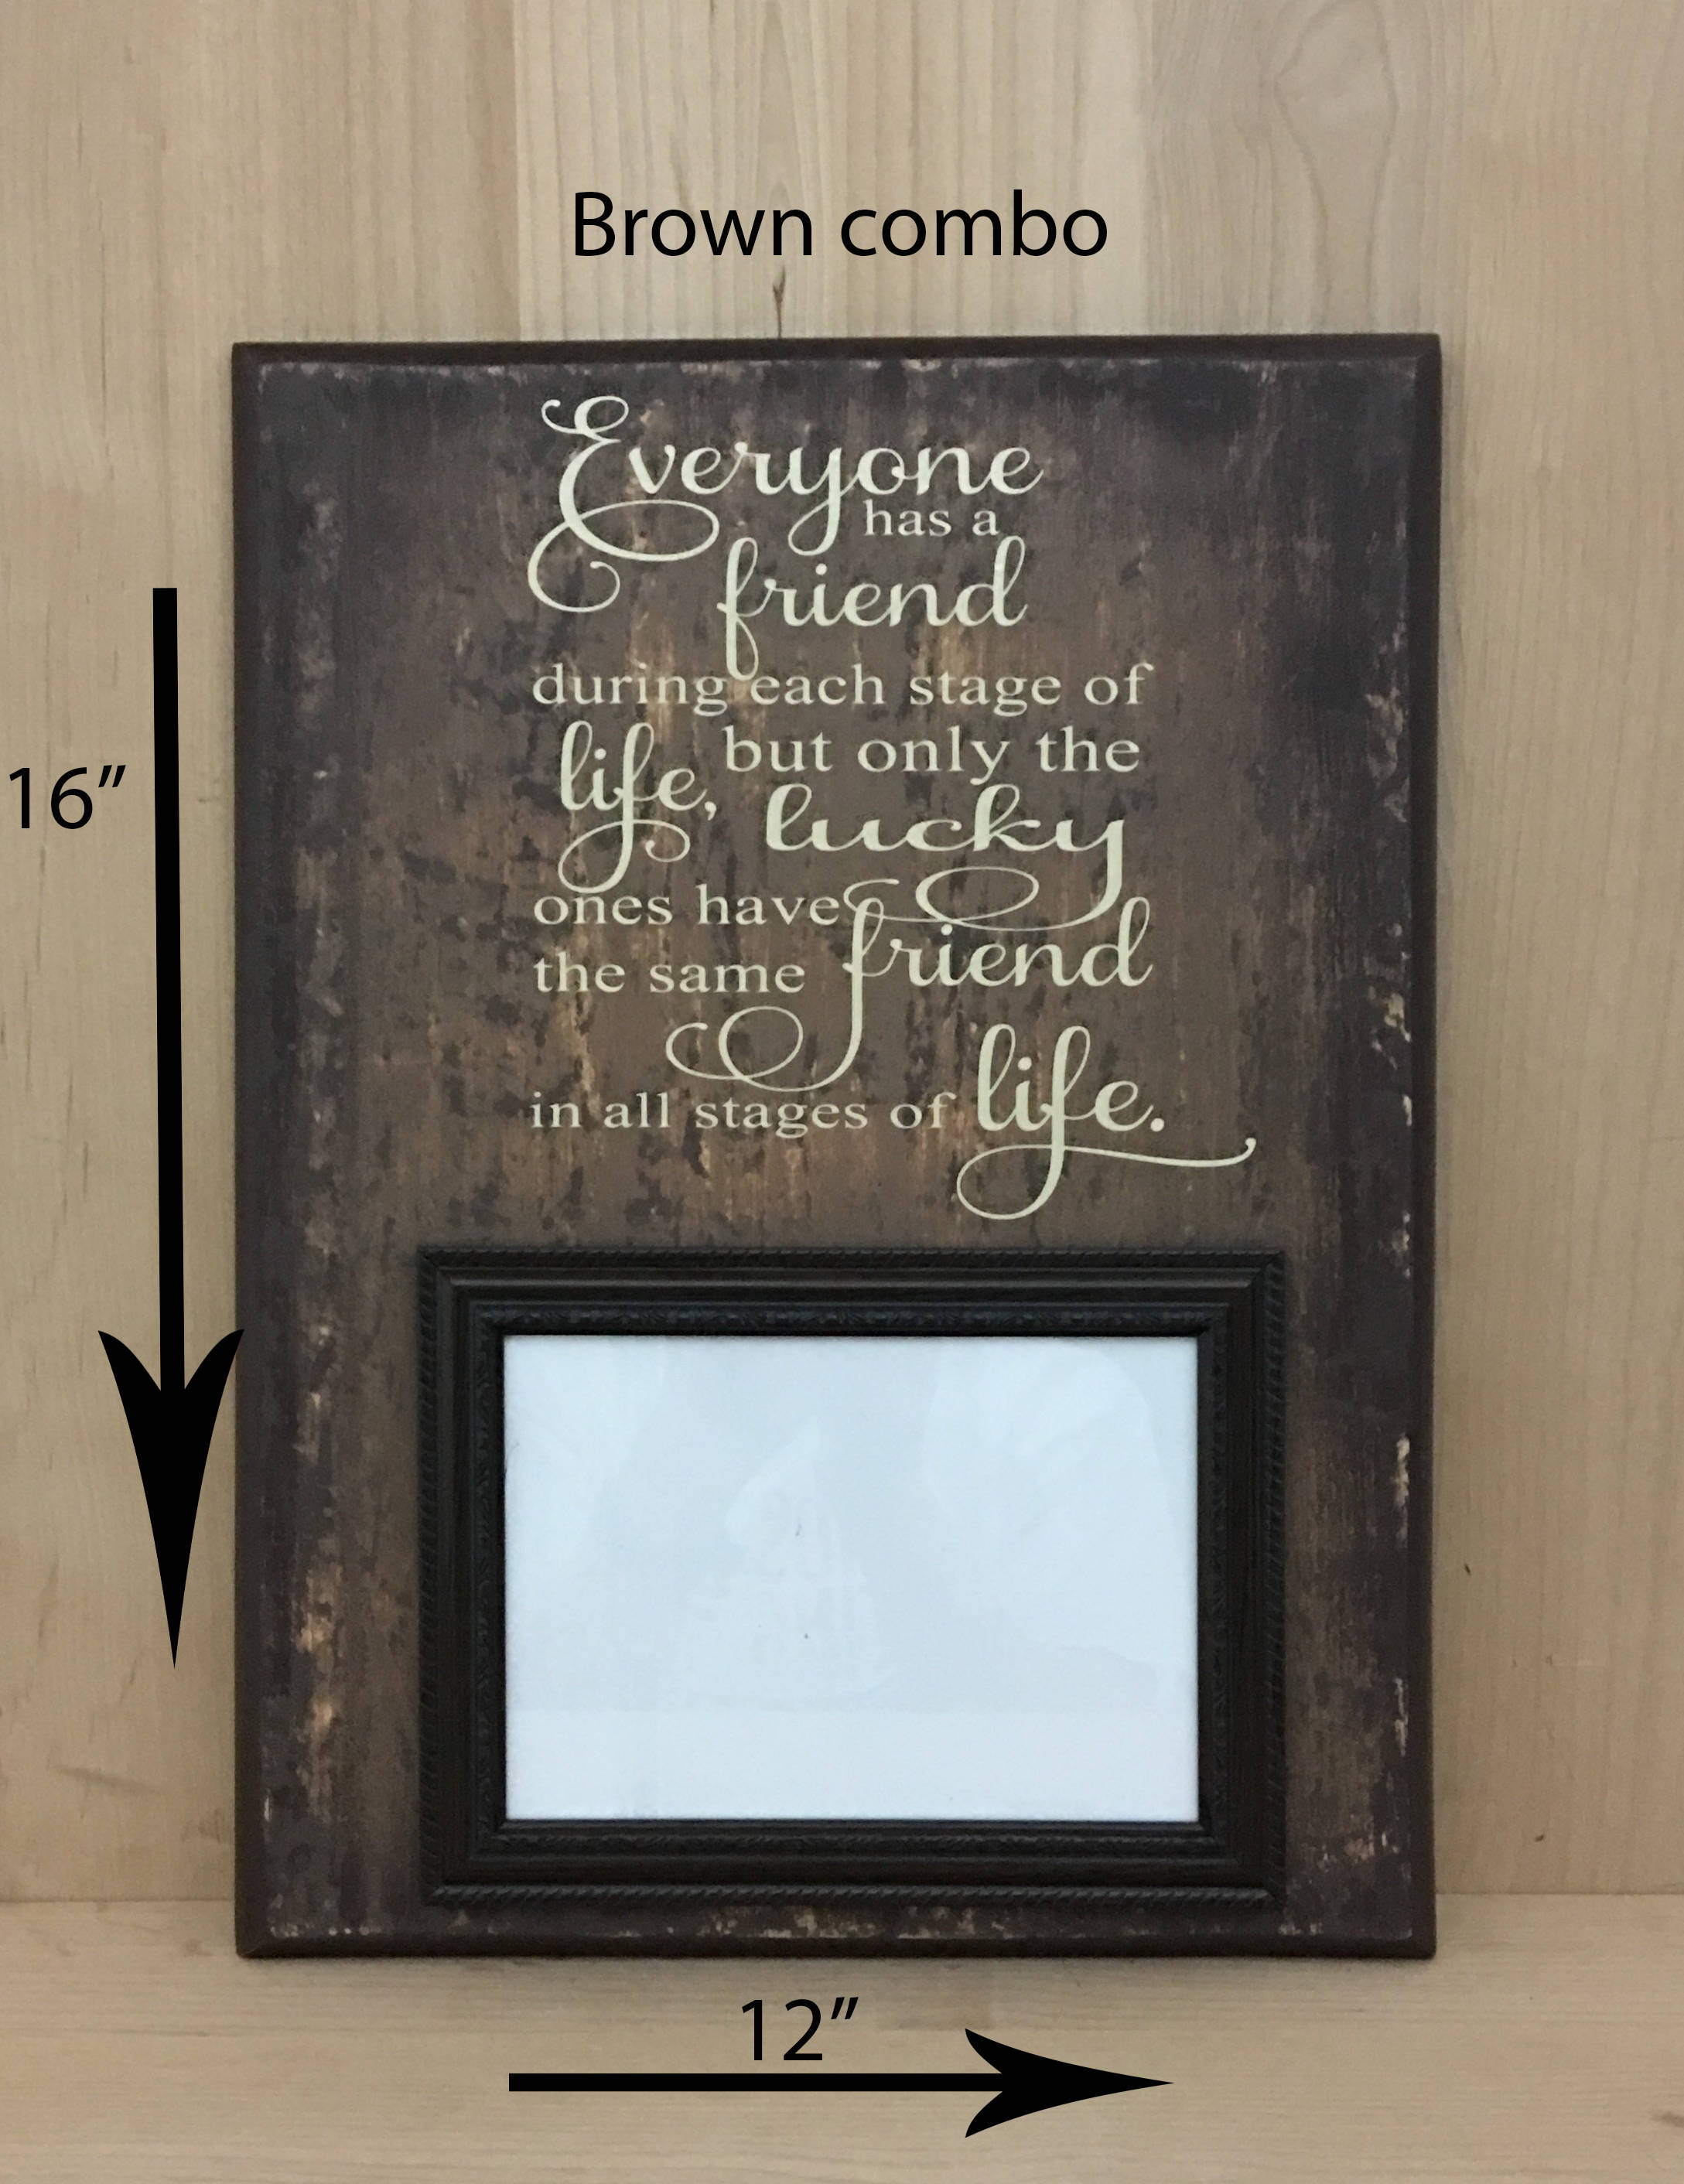 Brown combo
Everyone
has a
friend
during each stage of
life, but only the
lucky
ones have
the same friend
in all stages of life.
16”
12”